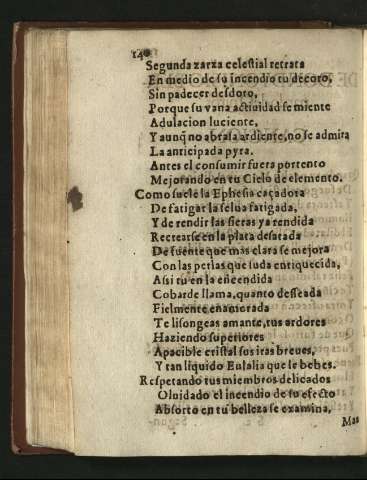 140
Segunda zarza celestial retrata
En medio de su incendio tu decoro,
Sin padecer desdoro,
Porque su vana actiuidad se miente
Adulacion luciente,
Y aunq̃ no abrasa ardiente, no se admira
La anticipada pyra.
Antes el consumir fuera portento
Mejorando en tu Cielo de elemento.
Como suele la Ephesia caçadora
De fatigar la selua fatigada,
Y de rendir las fieras ya rendida
Recrearse en la plata desatada
De fuente que mas clara se mejora
Con las perlas que suda enriquecida,
Assi tu en la encendida
Cobarde llama, quanto desseada
Fielmente enamorada
Te lisongeas amante, tus ardores
Haziendo superiores
Apacible cristal sus iras breues,
Y tan liquido Eulalia que le bebes.
Respetando tus miembros delicados
Oluidado el incendio de su efecto
Absorto en tu belleza se examina,
Mas